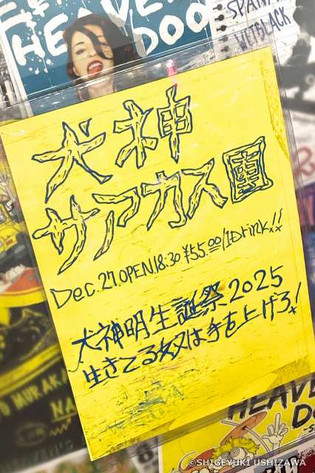 HEAVE
DOO
犬神
サアカス團
Dec.27.OPEN18:30 ¥55.00/1Drink!!
犬神明生誕祭2025
生きてる奴は手を上げろ!
MURAK
HEAVE
DO
©SHIGEYUKI USHIZAWA